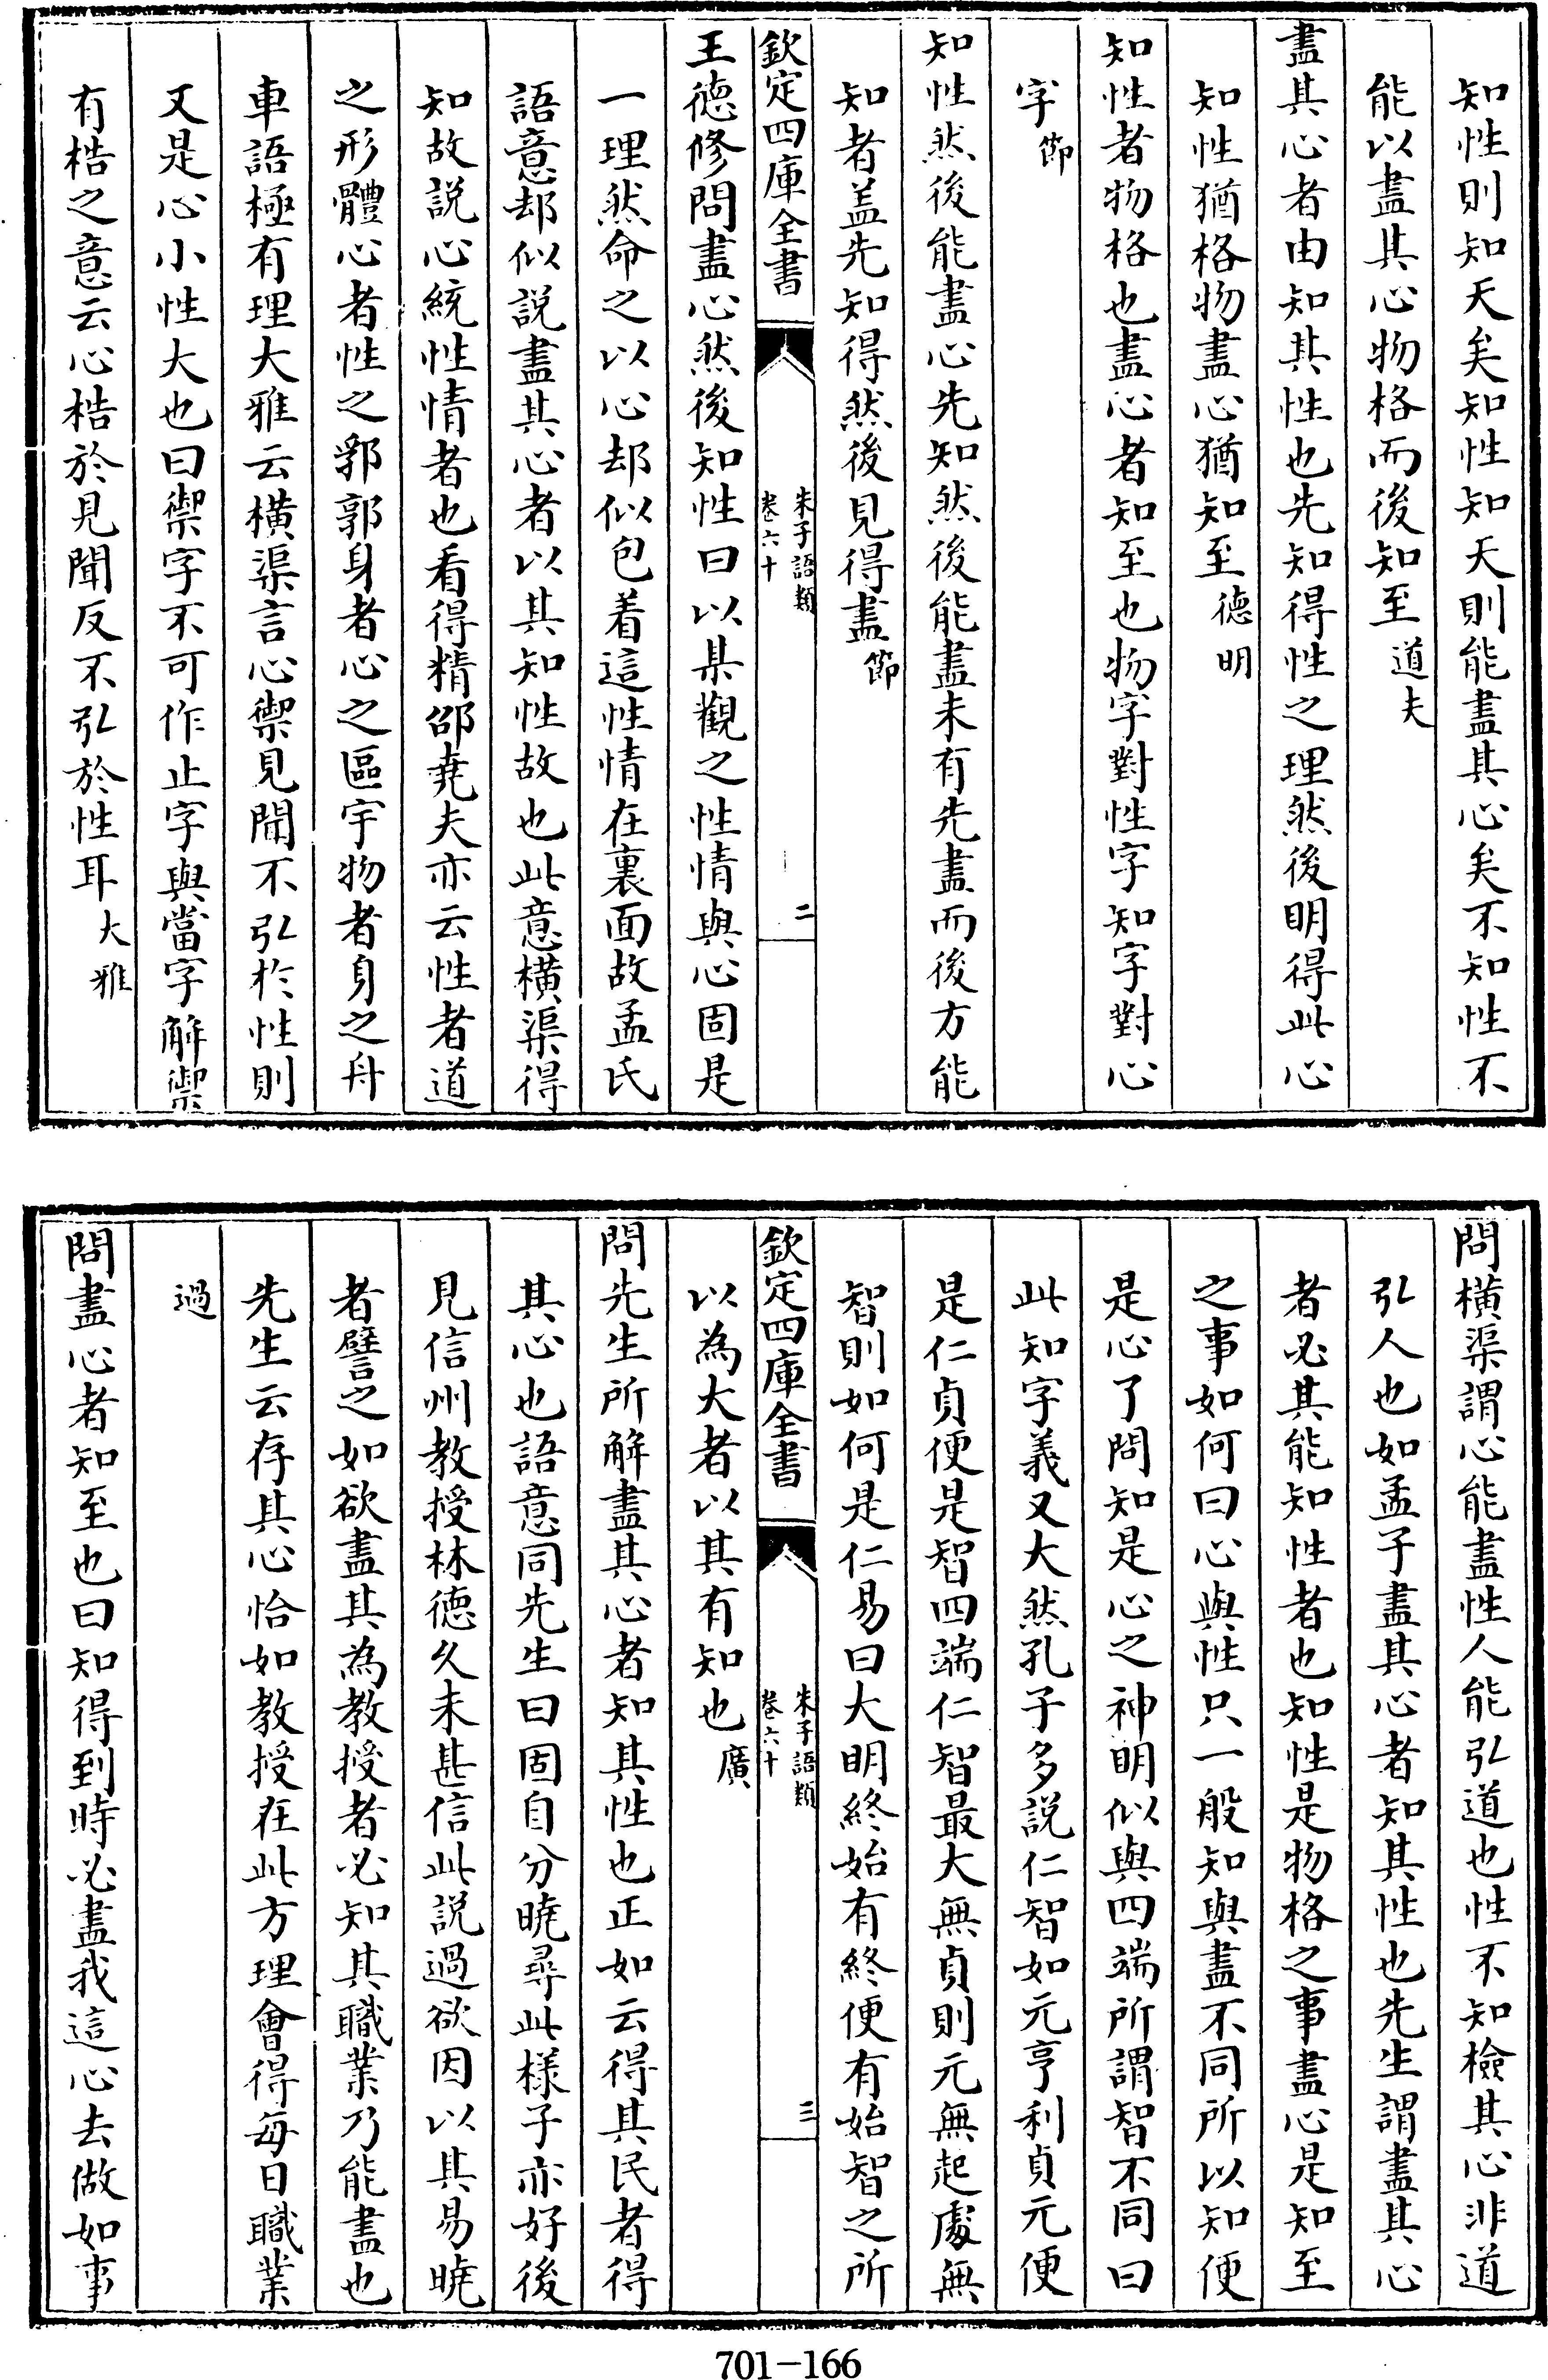 知性則知天矣知性知天則能盡其心矣不知性不
能以盡其心物格而後知至道夫
盡其心者由知其性也先知得性之理然後明得此心
知性猶格物盡心猶知至德明
知性者物格也盡心者知至也物字對性字知字對心
字節
知性然後能盡心先知然後能盡未有先盡而後方能
知者盖先知得然後見得盡節
欽定四庫全書
朱子語類
卷六十
二
王德修問盡心然後知性曰以某觀之性情與心固是
一理然命之以心却似包着這性情在裏面故孟氏
語意却似説盡其心者以其知性故也此意横渠得
知故説心統性情者也看得精邵堯夫亦云性者道
之形體心者性之郛郭身者心之區宇物者身之舟
車語極有理大雅云横渠言心禦見聞不弘於性則
又是心小性大也曰禦字不可作止字與當字解禦
有梏之意云心梏於見聞反不弘於性耳大雅
問横渠謂心能盡性人能弘道也性不知檢其心非道
弘人也如孟子盡其心者知其性也先生謂盡其心
者必其能知性者也知性是物格之事盡心是知至
之事如何曰心與性只一般知與盡不同所以知便
是心了問知是心之神明似與四端所謂智不同曰
此知字義又大然孔子多説仁智如元亨利貞元便
是仁貞便是智四端仁智最大無貞則元無起處無
智則如何是仁易曰大明終始有終便有始智之所
欽定四庫全書
朱子語類
卷六十
三
以為大者以其有知也廣
問先生所解盡其心者知其性也正如云得其民者得
其心也語意同先生曰固自分曉尋此様子亦好後
見信州教授林德久未甚信此説過欲因以其易曉
者譬之如欲盡其為教授者必知其職業乃能盡也
先生云存其心恰如教授在此方理會得每日職業
過
問盡心者知至也曰知得到時必盡我這心去做如事
701-166